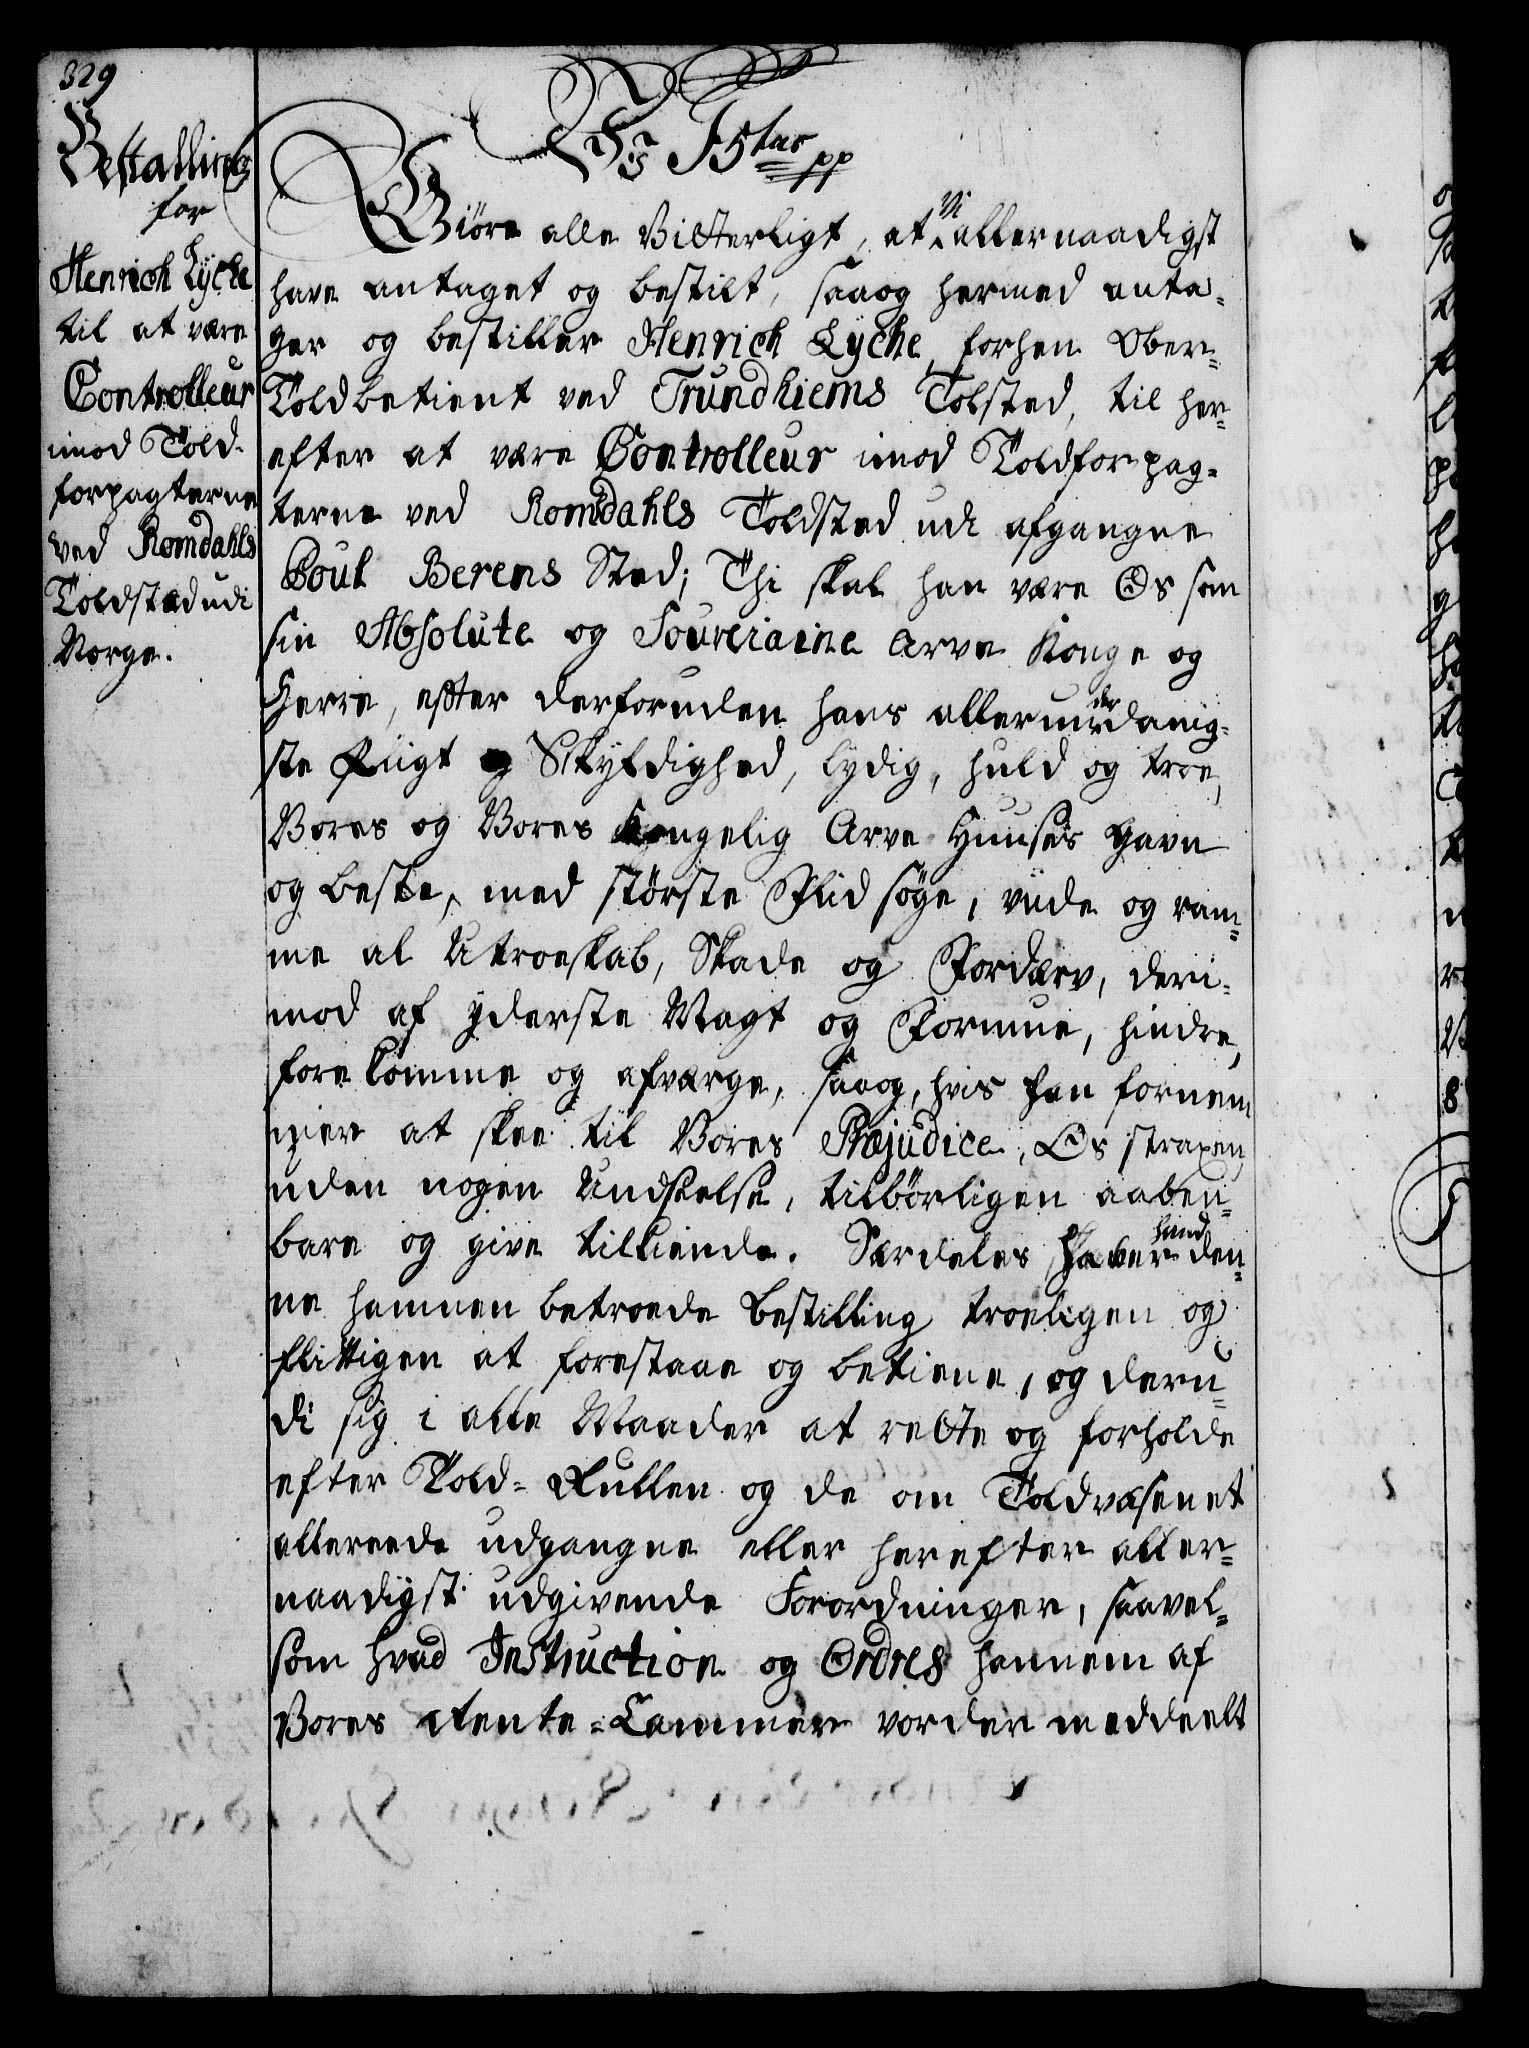 329
Bestalling
for
Henrich Lyche
til at være
Controlleur
imod Told-
forpagterne
ved Romdahls
Toldstæd udi
Norge.
Vi F5tus pp
Giøre alle Vitterligt, at Vi allernaadigst
have antaget og bestilt, saaog hermed anta-
ger og bestiller Henrich Lyche, forhen Ober-
Toldbetient ved Trundhiems Tolsted, til her-
efter at være Controlleur imod Toldforpag-
terne ved Romsdahls Toldsted udi afgangne
Poul Berens Sted; Thi skal han være Os som
sin Absolute og Souveraine Arve Konge og
Herre, efter derforuden hans allerunderdanig-
ste Pligt og Skyldighed, lydig, huld og troe,
Vores og Vores Kongelig Arve Huuses Gavn
og beste, med største Flid søge, viide og ram-
me al Utroeskab, Skade og Fordærv, deri-
mod af yderste Magt og Formue, hindre,
forekomme og afværge, saaog, hvis han fornem
mer at skee til Vores Præjudice, Os straxen,
uden nogen Undskelse, tilbørligen aaben-
bare og give tilkiende. Særdeles haver hand den-
ne hannem betroede Bestilling troeligen og
flittigen at forestaae og betiene, og deru-
di sig i alle Maader at rette og forholde
efter Told-Rullen og de om Toldvæsenet
allereede udgangne eller herefter aller-
naadigst udgivende Forordninger, saavel-
som hvad Instruction og Ordres hannem af
Vores Rente-Cammer vorder meddeelt